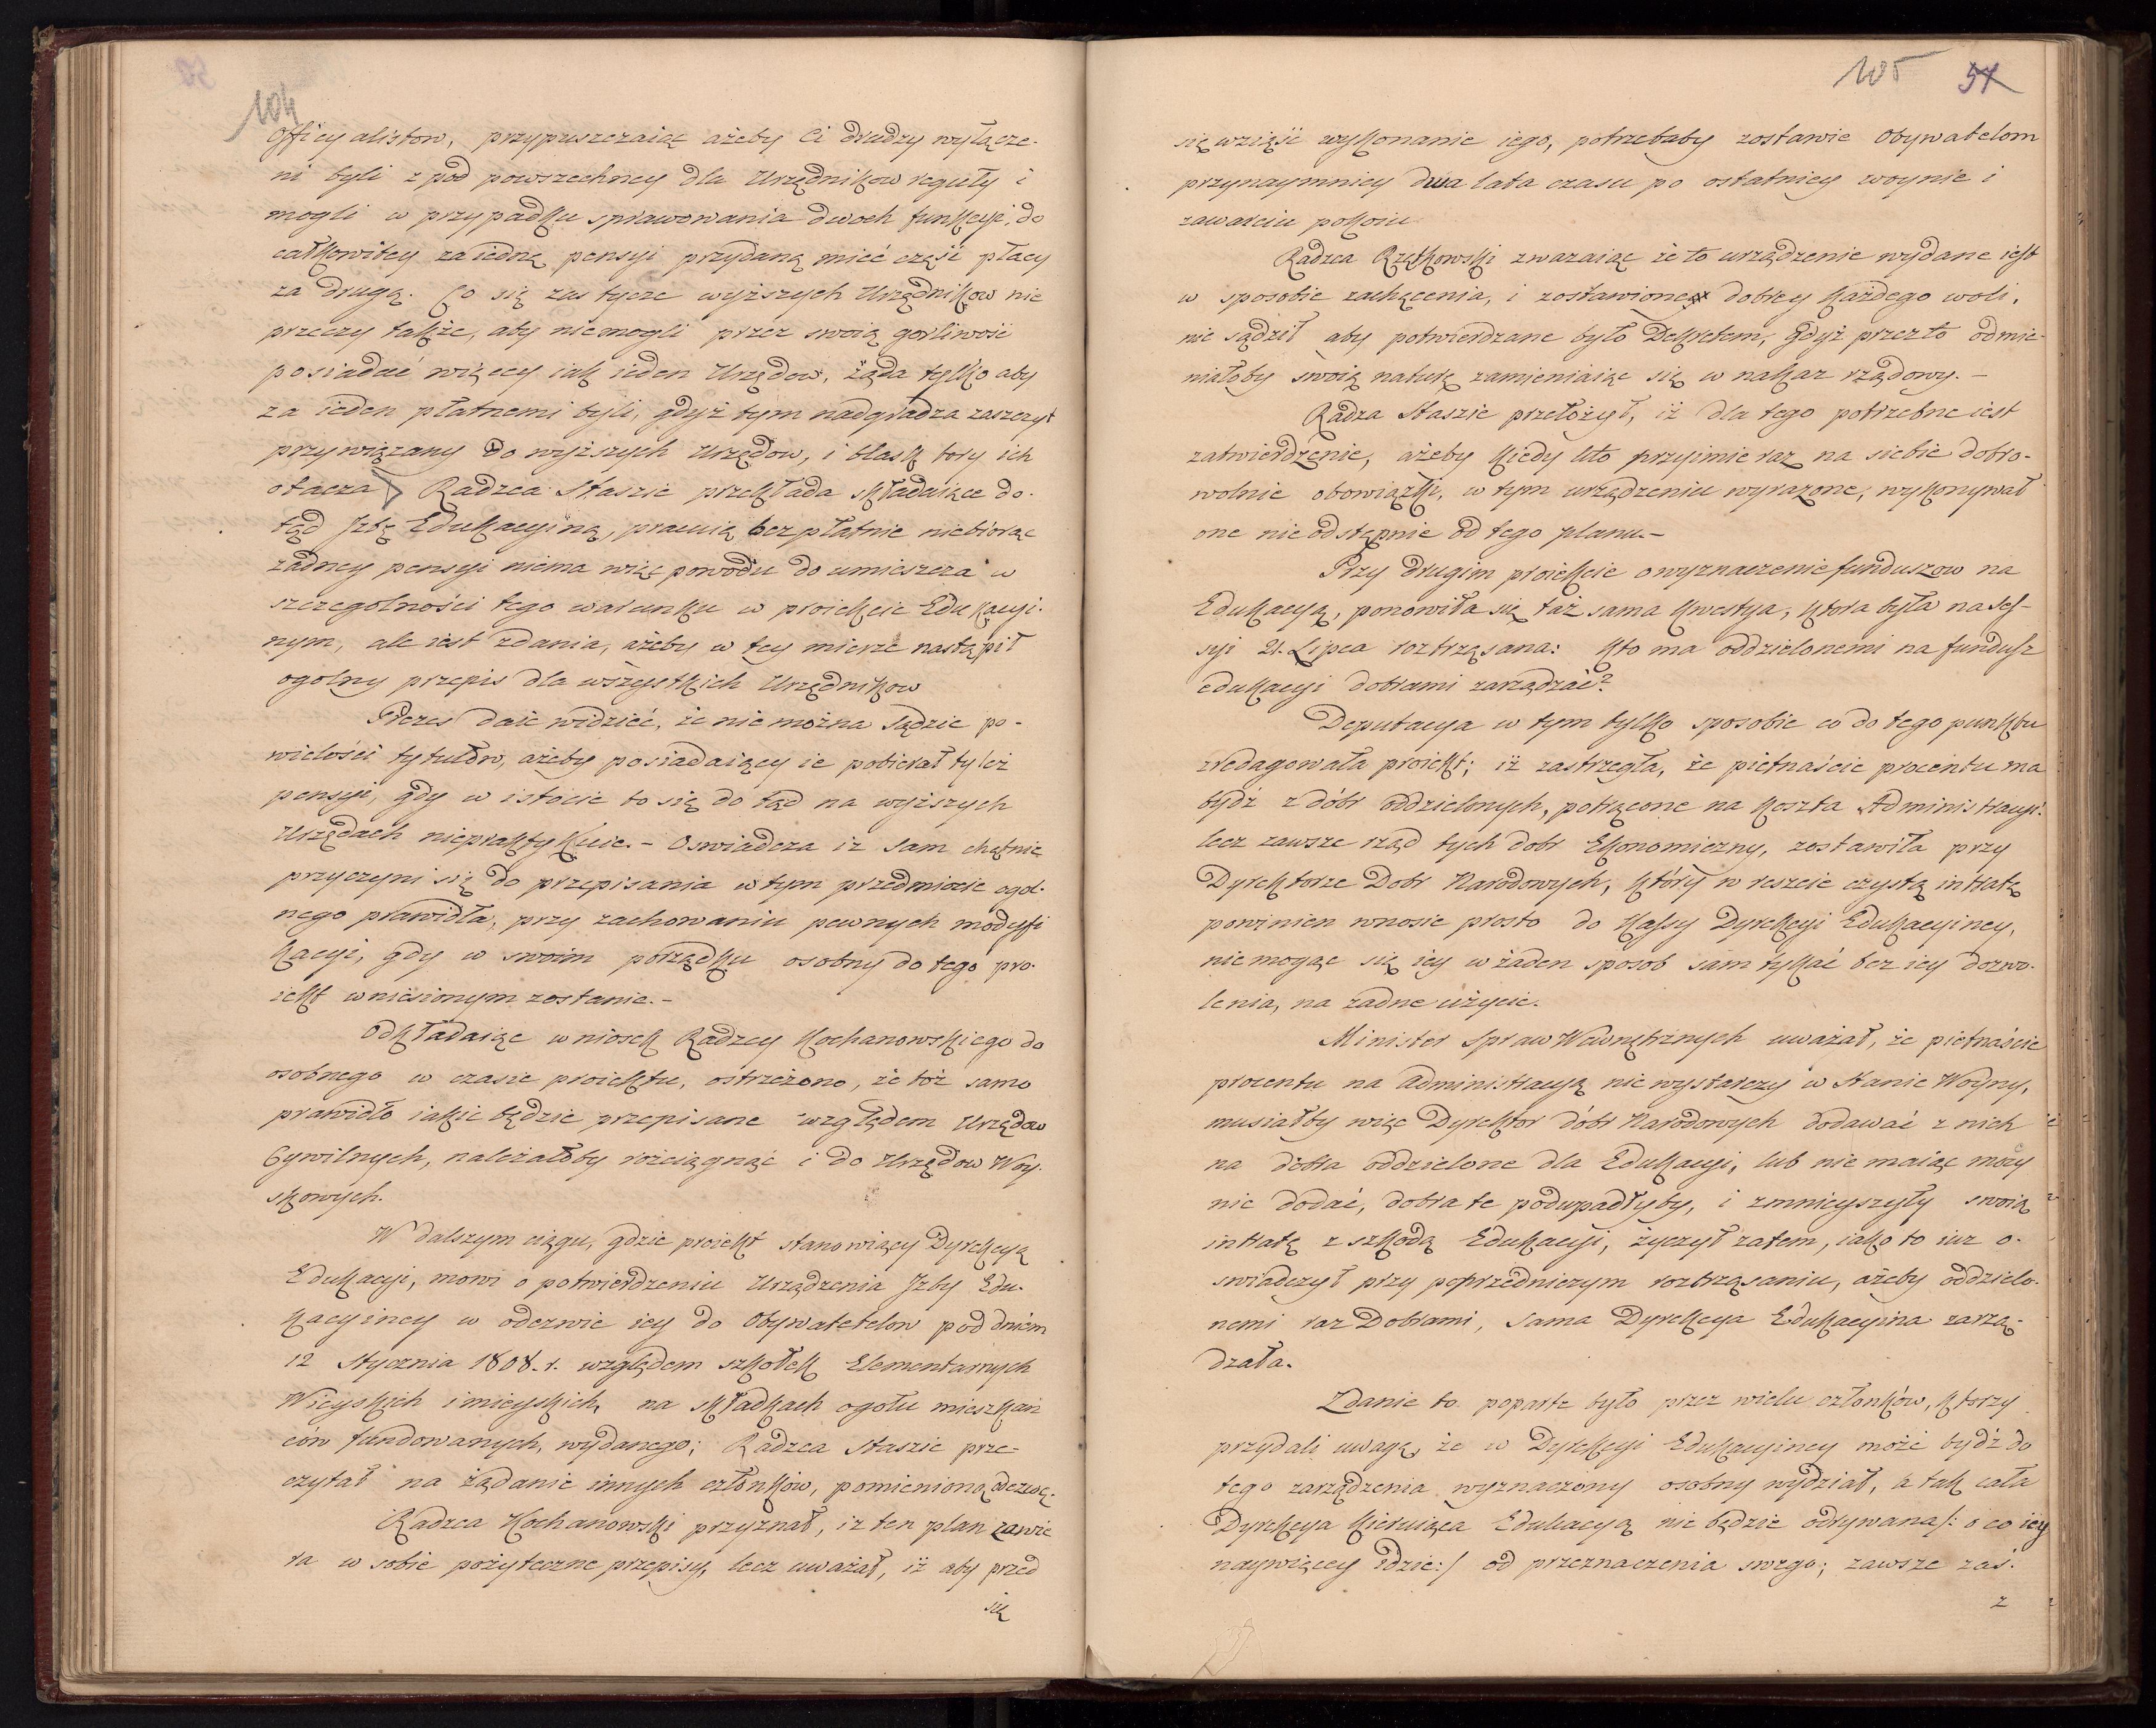 104
Officyalistow, przypuszczaiąc ażeby Ci drudzy wyłącze-
ni byli z pod powszechney dla Urzędnikow reguły i
mogli w przypadku sprawowania dwoch funkcyi, do
całkowitey za iedną pensyi przydaną mieć część płacy
za drugą. Co się zas tycze wyższych Urzędnikow nie
przeczy także, aby niemogli przez swoią gorliwość
posiadać więcey iak ieden Urzędow, żąda tylko aby
za ieden płatnemi byli, gdyż tym nadgradza zaszczyt
przywiązany do wyższych Urzędow, i blask ktory ich
otacza Radzca Staszic przekłada składaiące do-
tąd Jzbę Edukacyiną, pracuią bezpłatnie niebiorąc
żadney pensyi niema więc powodu do umieszcza w
szczegolności tego warunku w proiekcie Edukacyi-
nym, ale iest zdania, ażeby w tey mierze nastąpił
ogolny przepis dla wszystkich Urzędnikow
Prezes daie widzieć, że nie można sądzic po-
wielości tytułow, ażeby posiadaiący ie pobierał tyleż
pensyi, gdy w istocie to się do tąd na wyższych
Urzędach niepraktykuie. - Oswiadcza iz sam chętnie
przyczyni się do przepisania w tym przedmiocie ogol-
nego prawidła, przy zachowaniu pewnych modyfi
kacyi, gdy w swoim porządku osobny do tego pro-
iekt wniesionym zostanie. -
Odkładaiąc wniosek Radzcy Kochanowskiego do
osobnego w czasie proiektu, ostrzeżono, że toż samo
prawidło iakie będzie przepisane względem Urzędow
Cywilnych, należałoby rozciągnąć i do Urzędow Woy-
skowych.
W dalszym ciągu, gdzie proiekt stanowiący Dyrekcyą
Edukacyi, mowi o potwierdzeniu Urządzenia Jzby Edu-
kacyiney w odezwie iey do Obywatetelow pod dniem
12 Stycznia 1808. r. względem szkołek Elementarnych
Wieyskich i mieyskich, na składkach ogołu mieszkań
ców fundowanych, wydanego; Radzca Staszic prze-
czytał na żądanie innych członków, pomienioną odezwę.
Radzca Kochanowski przyznał, iz ten plan zawie
ra w sobie pożyteczne przepisy, lecz uważał, iż aby przed
się
105 51
się wziąść wykonanie iego, potrzebaby zostawic Obywatelom
przynaymniey dwa lata czasu po ostatniey woynie i
zawarciu pokoiu
Radzca Rzątkowski zwazaiąc że to urządzenie wydane iest
w sposobie zachęcenia, i zostawione dobrey każdego woli,
nie sądził aby potwierdzane było Dekretem, gdyż przez to odmie-
niałoby swoią naturę zamieniaiąc się w nakaz rządowy. -
Radza Staszic przełożył, iż dla tego potrzebne iest
zatwierdzenie, ażeby kiedy kto przyimie raz na siebie dobro-
wolnie obowiązki, w tym urządzeniu wyrazone, wykonywał
one nie odstępnie od tego planu. -
Przy drugim proiekcie o wyznaczenie funduszow na
Edukacyą, ponowiła się taż sama kwestya, ktora była na ses-
syi 21. Lipca roztrząsana: kto ma oddzielonemi na fundusz
edukacyi dobrami zarządzać?
Deputacya w tym tylko sposobie co do tego punktu
zredagowała proiekt; iż zastrzegła, że pietnaście procentu ma
bydź z dóbr oddzielonych, potrącone na koszta Administracyi.
lecz zawsze rząd tych dobr Ekonomiczny, zostawiła przy
Dyrektorze Dobr Narodowych, który w reszcie czystą intratę
powinien wnosic prosto do Kassy Dyrekcyi Edukacyiney,
niemogąc się iey w żaden sposob sam tykać bez iey dozwo-
lenia, na żadne użycie.
Minister Spraw Wewnętrznych uważał, że pietnaście
procentu na administracyą nie wystarczy w Stanie Woyny,
musiałby więc Dyrektor dóbr Narodowych dodawać z nich
na dobra oddzielone dla Edukacyi, lub nie maiąc mocy
nic dodać, dobra te podupadłyby, i zmnieyszyły swoią
intratę z szkodą Edukacyi, życzył zatem, iako to iuz o-
swiadczył przy poprzedniczym roztrząsaniu, ażeby oddzielo-
nemi raz Dobrami, sama Dyrekcya Edukacyina zarzą-
dzała.
Zdanie to poparte było przez wielu członków, ktorzy
przydali uwagę, że w Dyrekcyi Edukacyiney może bydź do
tego zarządzenia wyznaczony osobny wydział, a tak cała
Dyrekcya kieruiąca Edukacyą nie będzie odrywana /: o co iey
naywięcey idzie :/ od przeznaczenia swego; zawsze zaś.
z